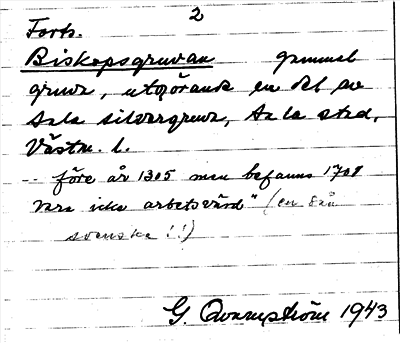 2
Forts.
Biskopsgruvan gammal
gruva, utgörande en del av
Sala silvergruva, Sala stad,
Västm. l.
-- före år 1305 men befanns 1708
vara icke arbetsvärd" (en
svenska!!)
G. Qvarnström 1943